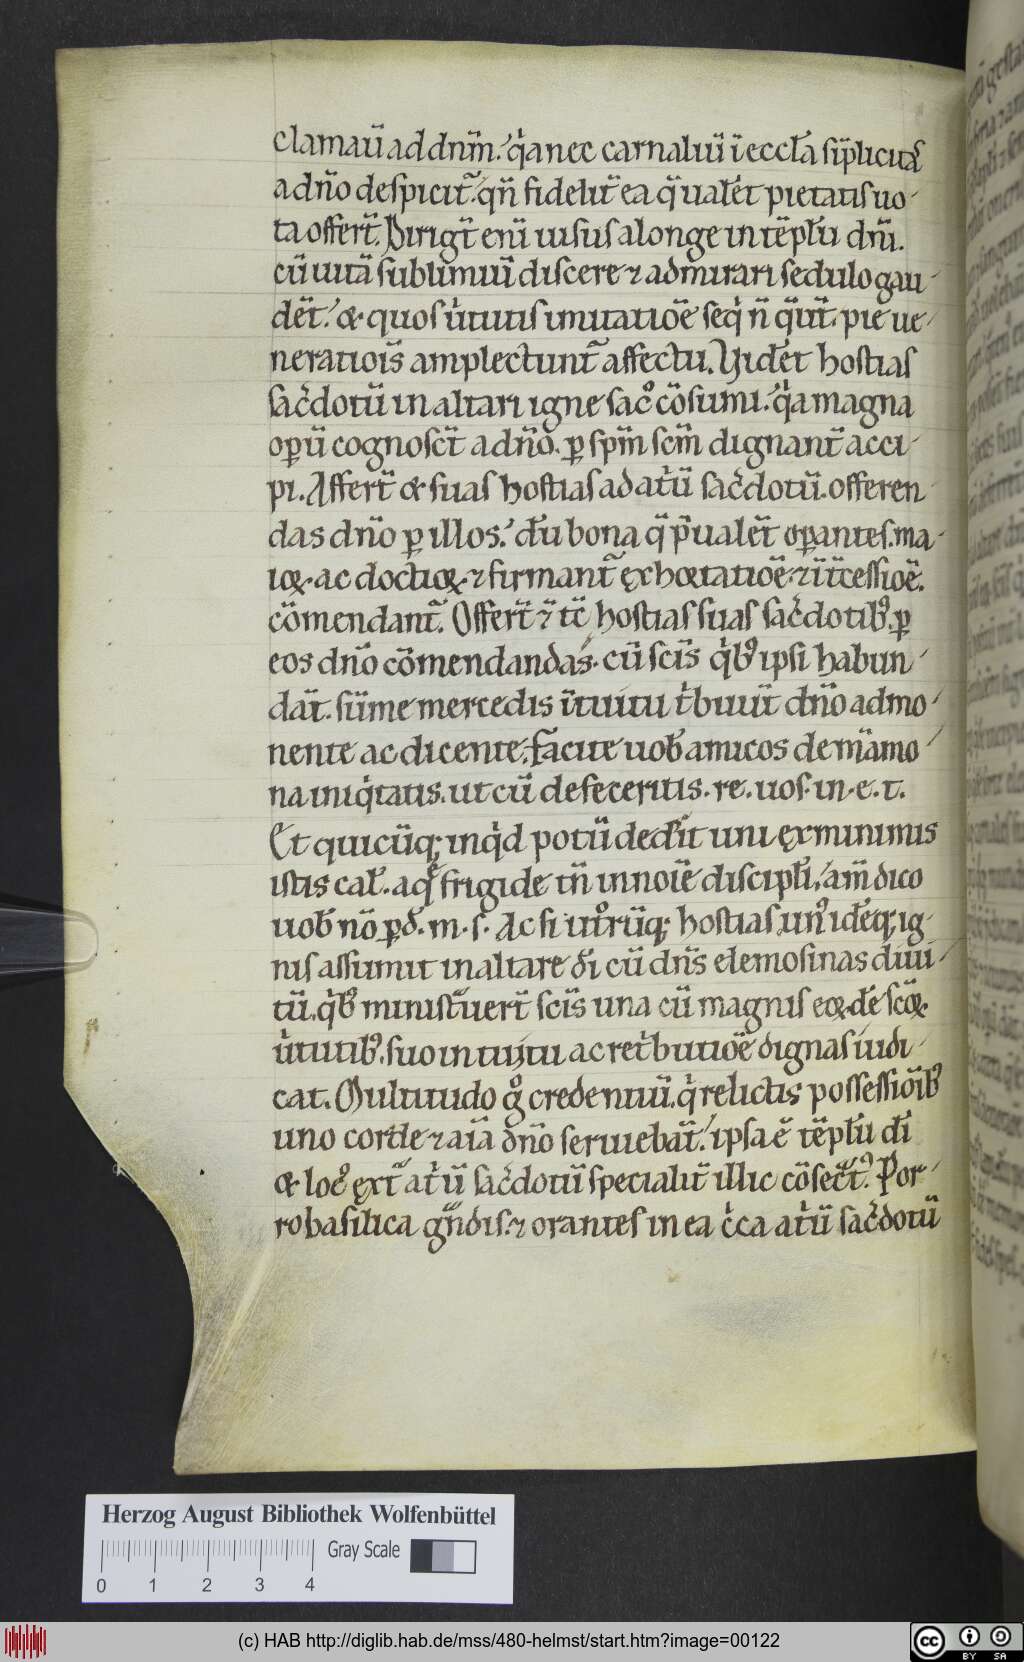 clamaū ad dn̄m. q̇a nec carnaliū ī eccl̄a sīplicitaſ
a dn̄o deſpicit̃. qn̄ fidelit̄ ea q̄ ual&t pietatis uo-
ta offert̄. Dirigt̄ enī uiſus a longe in tēplū dn̄i.
cū uitā ſublimiū diſcere ⁊ admirari ſedulo gau-
det̄. & quoſ u̇tutiſ imitatiōe ſeq̇ n̄ q̄ūt. pie ue-
neratiois̄ amplectunt̃ affectu. Vid&t hoſtias
ſac̓dotū in altari igne ſac̊ cōſumi. q̇a magna
oꝑū cognoſct̄ a dn̄o. ꝑ ſpm̄ ſcm̄ dignant̃ acci-
pi. Affert̄ & ſuaſ hoſtiaſ ad at̓ū ſac̓dotū. offeren-
das dn̄o ꝑ illos. dū bona q̄ p̄ualet̄ oꝑanteſ. ma-
ioꝝ ac doctioꝝ ⁊ firmant̃ exhortatiōe. ⁊ īt̄ceſſiōe.
cōmendant̃. Offert̄ ⁊ t̄c hoſtiaſ ſuaſ ſac̓dotibꝰ. ꝑ
eos dn̄o cōmendandas. cū ſcīs q̇bꝰ ipſi habun-
dat̄. ſūme mercedis ītuitu t̓buūt dn̄o admo-
nente ac dicente. facite uob̄ amicos de māmo-
na iniq̇tatis. ut cū defeceritis. re. uoſ. in. e. t.
Et quicūq; inq̇d potū ded̓it uni ex minimis
istis cal̄. aq̄ frigide tn̄ in noīe diſcipl̄i, am̄ dico
uob̄ nō ꝑd̄. m. ſ. Ac ſi utrūq; hoſtiaſ unꝰ idēq; ig-
nis aſſumit in altare dī cū dn̄s elemoſinas diui-
tū. q̇bꝰ miniſt̃uert̄ ſcīs una cū magniſ eoꝝdē ſcōꝝ
u̇tutibꝰ. ſuo intuitu ac ret̓butiōe dignaſ iudi-
cat. Multitudo g̊ credentiū. q̇ relictis poſſeſſiōibꝰ
uno corde ⁊ aīa dn̄o ſeruiebat̄. ipſa ē tēplū dī
& locꝰ ext̃ at̓ū ſac̓dotū ſpecialit̄ illic cōſec̃tꝰ. Por-
ro baſilica g̃ndis. ⁊ oranteſ in ea c̓ca at̓ū ſac̓dotū
Herzog August Bibliothek Wolfenbüttel
Gray Scale
0 1 2 3 4
(c) HAB http://diglib.hab.de/mss/480-helmst/start.htm?image=00122
cc BY SA